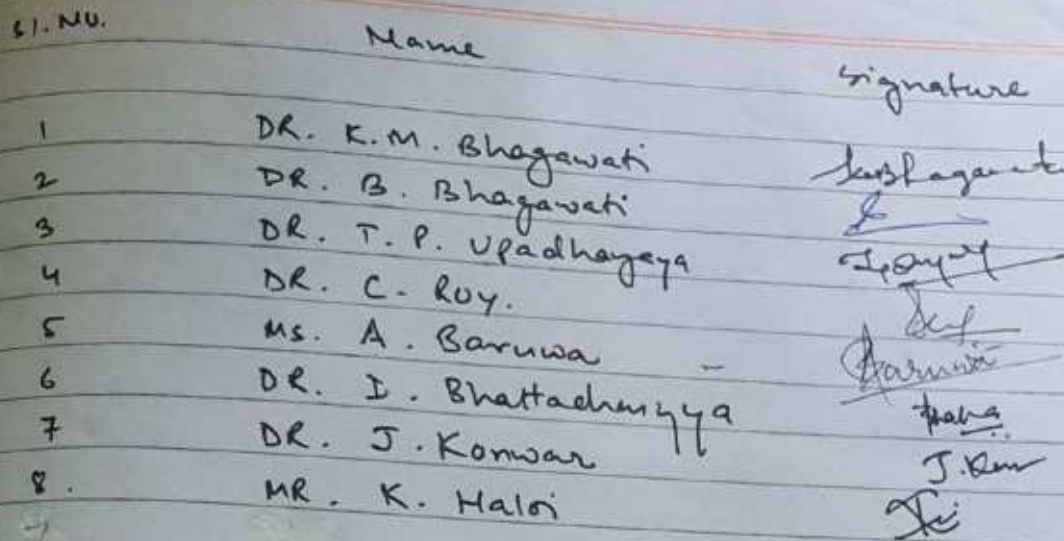 Sl. No. Name Signature
1 DR. K.M. Bhagawati
2 DR. B. Bhagawati
3 DR. T. P. Upadhayaya
4 DR. C. Roy.
5 Ms. A. Baruwa - Baruwa
6 DR. I. Bhattacharyya
7 DR. J. Konwar
8. MR. K. Haloi